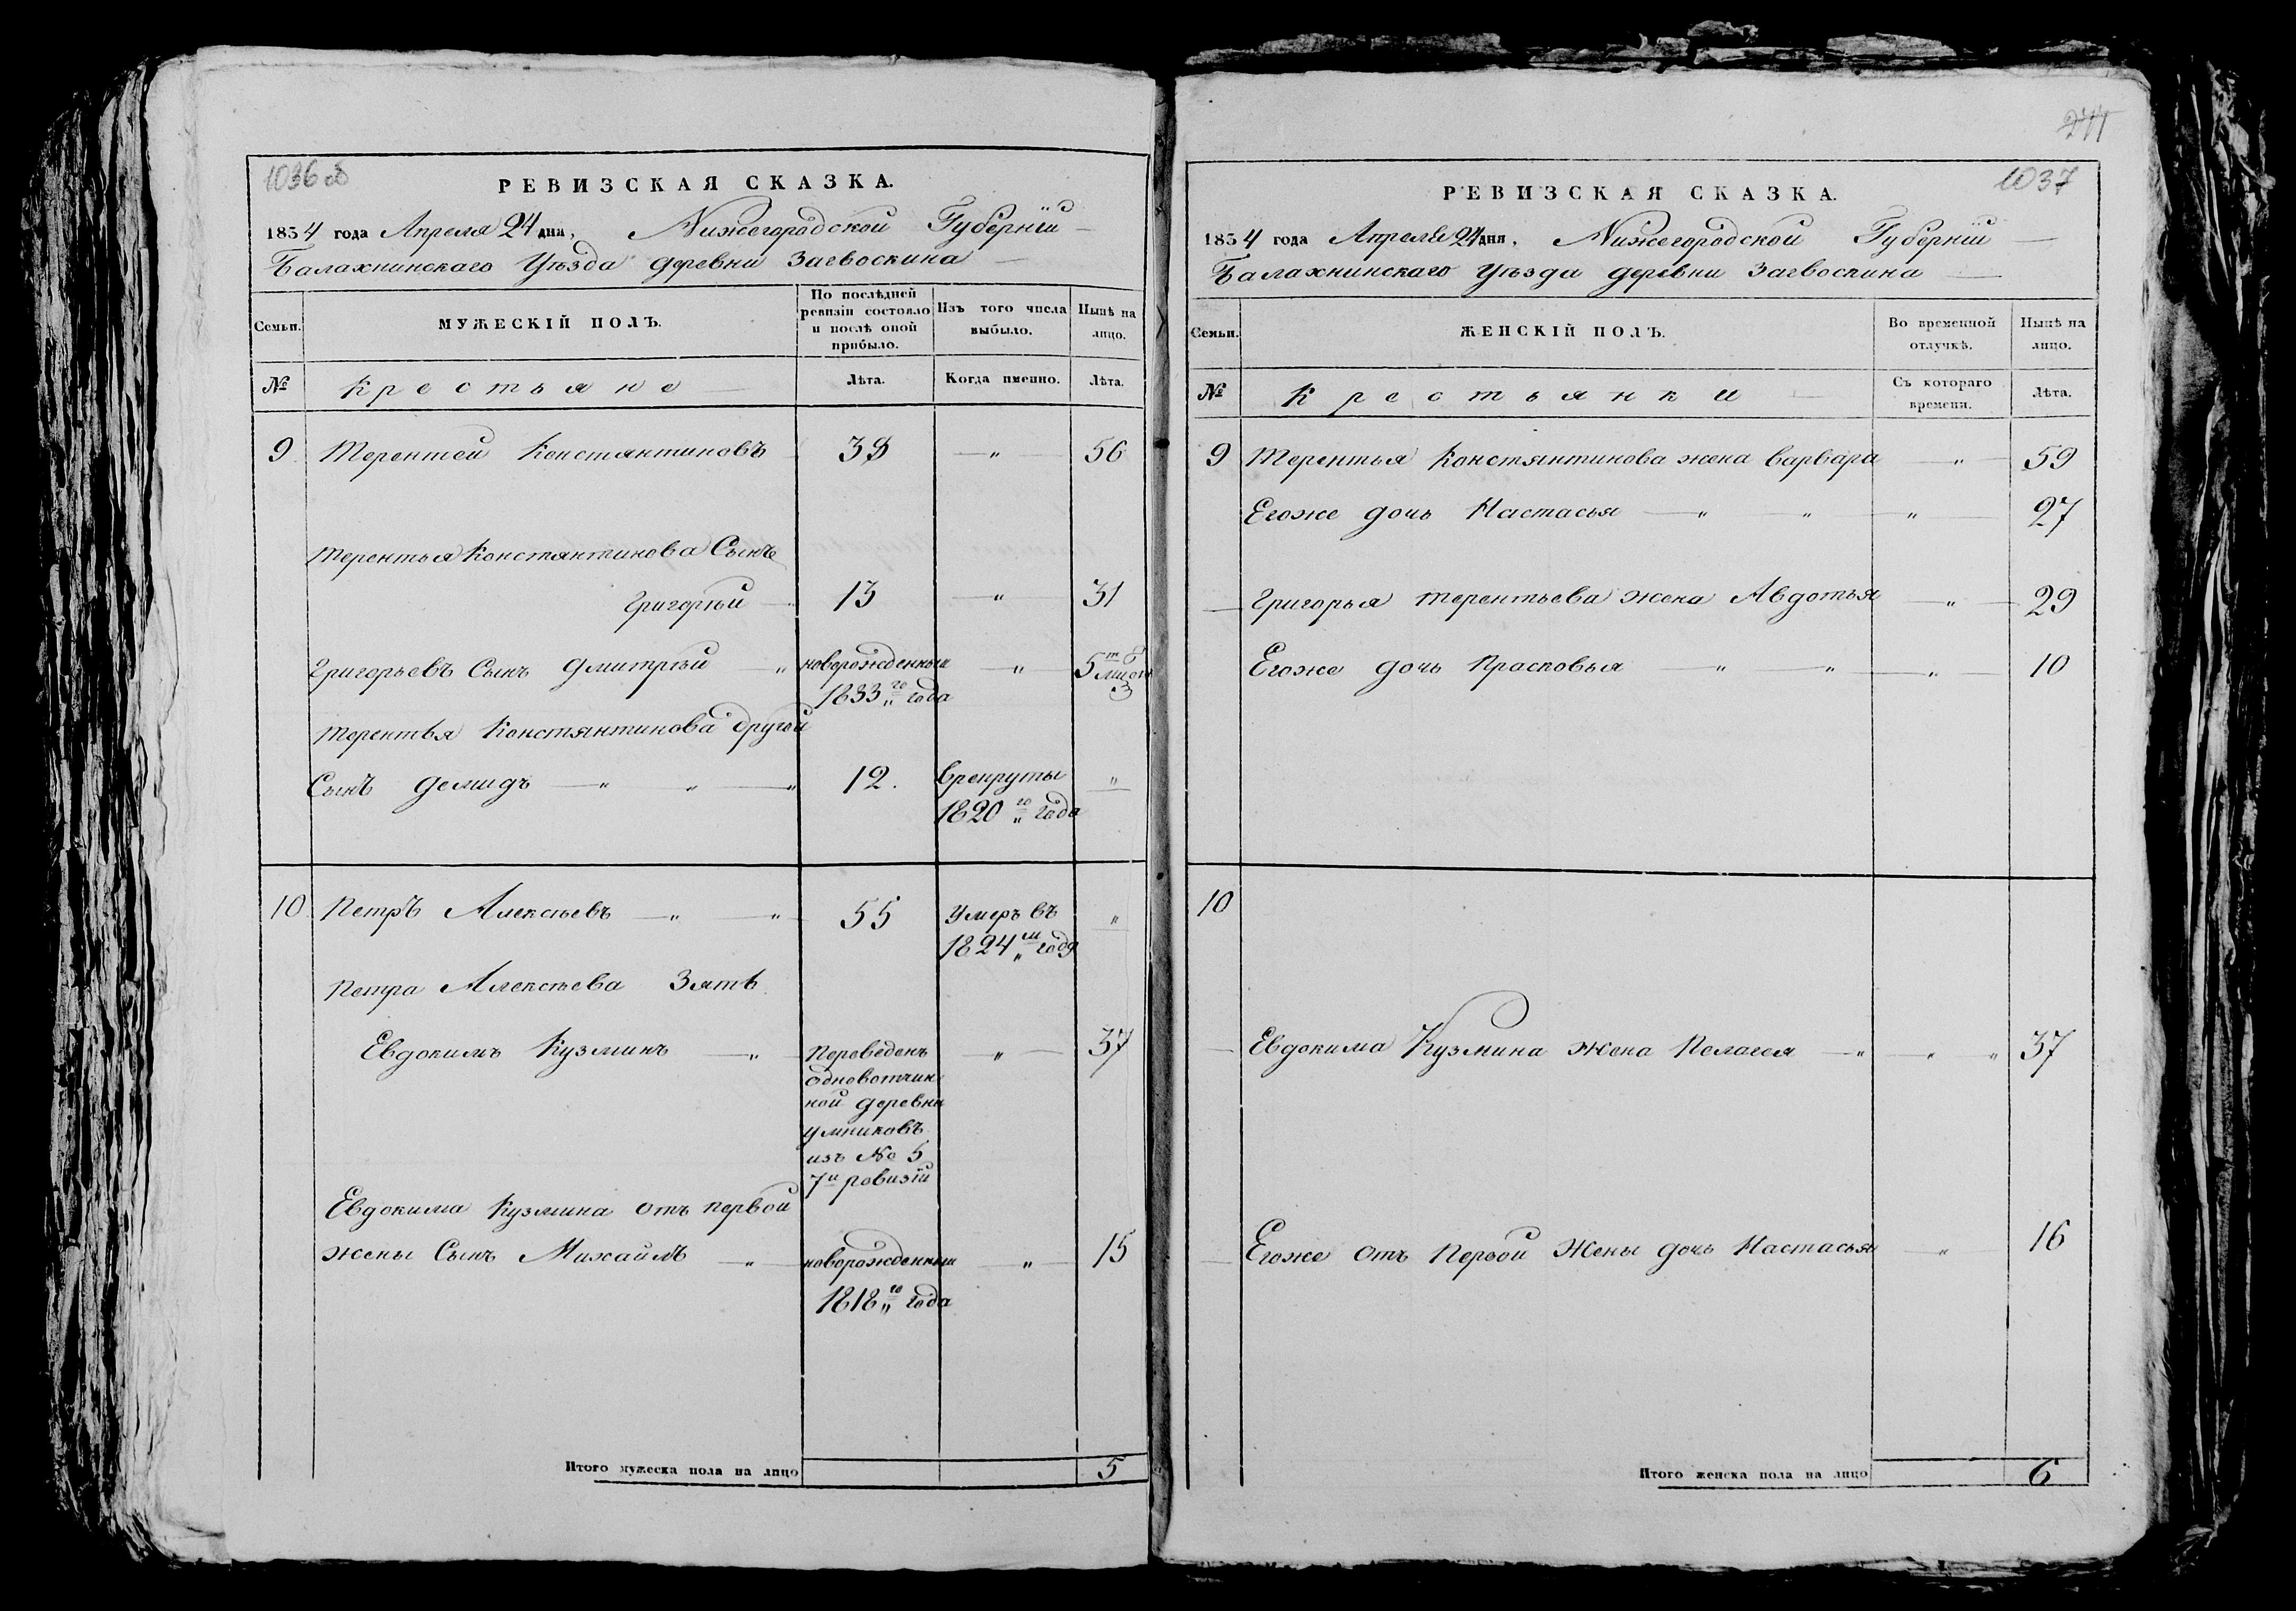 1036 об
РЕВИЗСКАЯ СКАЗКА.
1834 года Апреля 24 дня, Нижегородской Губерніи
Балахнинскаго Уѣзда деревни Заевоскина
Семьи. МУЖЕСКІЙ ПОЛЪ. По послѣдней ревизіи состояло и послѣ оной прибыло. Изъ того числа выбыло. Нынѣ на лицо.
№ Крестьяне Лѣта. Когда именно. Лѣта.
9 Терентей Константиновъ 38 — „ — 56
Терентья Константинова Сынъ
Григорій — 13 — „ — 31
Григорьевъ Сынъ Дмитрій „ новорожденный — „ 5
1833 го года
Терентья Константинова другой
Сынъ Демидъ — „ „ — „ 12. Врекруты „
1820 го года
10 Петръ Алексѣевъ — „ „ 55 Умеръ въ „
1824 м годя
Петра Алексѣева Зять
Евдокимъ Кузминъ — „ Переведенъ — „ — 37
одновотчин
ной деревни
умниковъ
изъ № 5
7й ревизіи
Евдокима Кузмина отъ первой
жены Сынъ Михайлъ — „ новорожденный — „ — 15
1818 го года
Итого мужеска пола на лицо 5
1037
РЕВИЗСКАЯ СКАЗКА.
1834 года Апреля 24 дня, Нижегородской Губерніи —
Балахнинскаго Уѣзда деревни Заевоскина —
Семьи. ЖЕНСКІЙ ПОЛЪ. Во временной отлучкѣ. Нынѣ на лицо.
№ Крестьянки Съ котораго времени. Лѣта.
9 Терентья Константинова жена Варвара — „ — 59
Егоже дочь Настасья — „ „ — „ — 27
— Григорья Терентьева жена Авдотья — „ — 29
Егоже дочь Прасковья — „ — „ — „ — 10
10
— Евдокима Кузмина жена Пелагея — „ „ „ 37
— Егоже отъ первой жены дочь Настасья „ 16
Итого женска пола на лицо 6